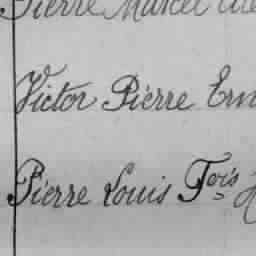 Pierre Marcel
Victor Pierre
Pierre Louis Fois